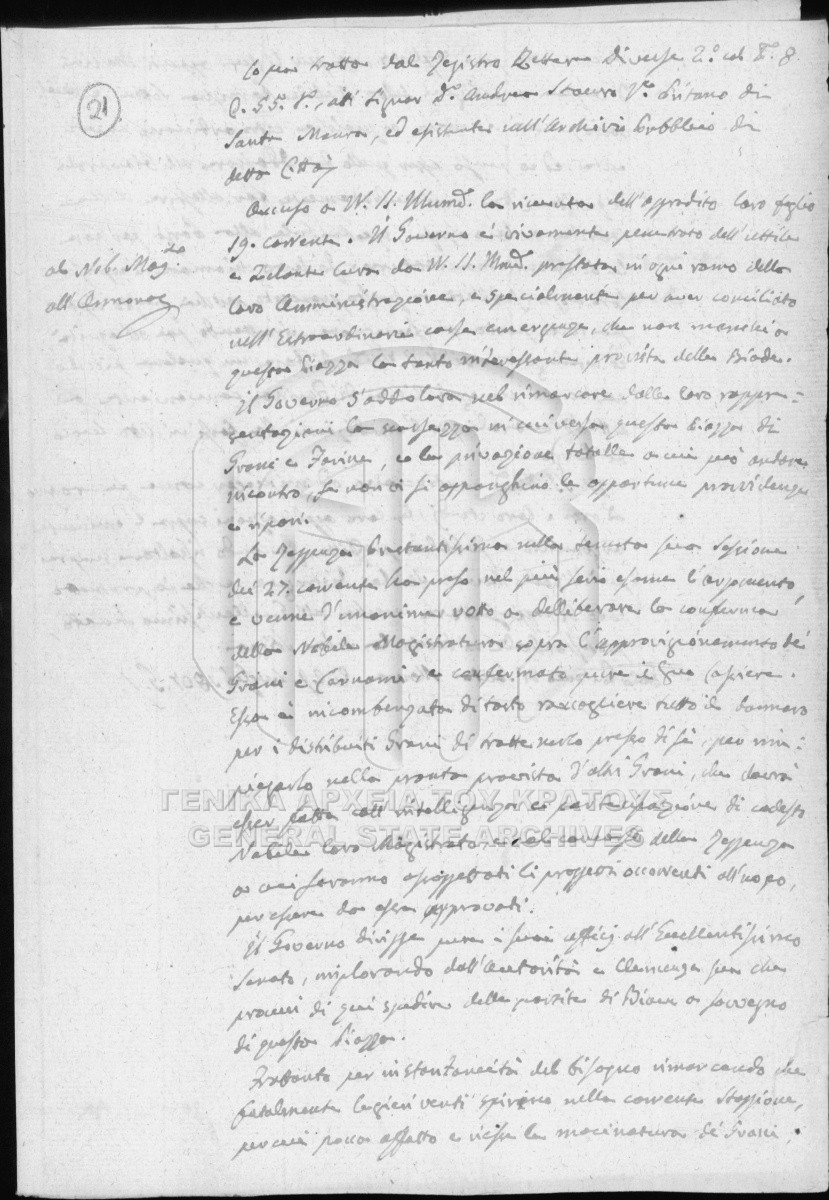 21
Copia tratta dal Registro Lettere Diverse 2.° col T. 8
C. 55. t.°, all Signor D.r Andrea Stavro V.e Pritano di
Santa Maura, ed esistente nell'Archivio Pubblico di
detta Città
al Nob. Mag.ito
all'Annona
Accuso a W. SS. Illumd. la ricevuta dell'aggradito loro foglio
19. corrente. Il Governo è vivamente penetrato dell'uttile
e Zelante cura da W. SS. Illmd. prestata in ogni ramo della
loro Amministrazione, e specialmente per aver conciliato
nell'Estraordinarie corse emergenze, che non manchi a
questa Piazza la tanto interessante provista delle Biade.
Il Governo s'addolora nel rimarcare dalle loro rappre=
sentazioni la scarsezza in cui versa questa Piazza di
Grani e Farine, e la privazione totalle a cui può andare
incontro, se non vi si apponghino le opportune providenze
e ripari.
La Reggenza Prestantissima nella tenuta sua Sessione
dei 27. corrente ha preso nel più serio esame l'argomento,
e venne d'unanime votto a delliberare la conferma
della Nobile Magistratura sopra l'approvigionamento de'
Grani e Carnami, e confermato pure il suo Cassiere.
Essa è incombenzata di tosto raccogliere tutto il dannaro
per i distribuiti Grani di trattenerlo presso di sè, per rim=
piegarlo nella pronta provista d'altri Grani, che dovrà
esser fatta coll'intelligenza e partecipazione di codesto
Nobile loro Magistrato, e col concorso della Reggenza
a cui saranno assoggettati li proggetti occorrenti all'uopo,
per essere da essa approvati.
Il Governo diresse pure i suoi ufficj all'Eccellentissimo
Senato, implorando dall'Autorità e Clemenza sua che
procuri di qui spedire delle partite di Biave a sovvegno
di questa Piazza.
Frattanto per instantaneità del bisogno rimarcando che
fatalmente leggieri venti spirano nella corrente Staggione,
per cui poca affatto e riesce la macinatura de' Grani,
ΓΕΝΙΚΑ ΑΡΧΕΙΑ ΤΟΥ ΚΡΑΤΟΥΣ
GENERAL STATE ARCHIVES